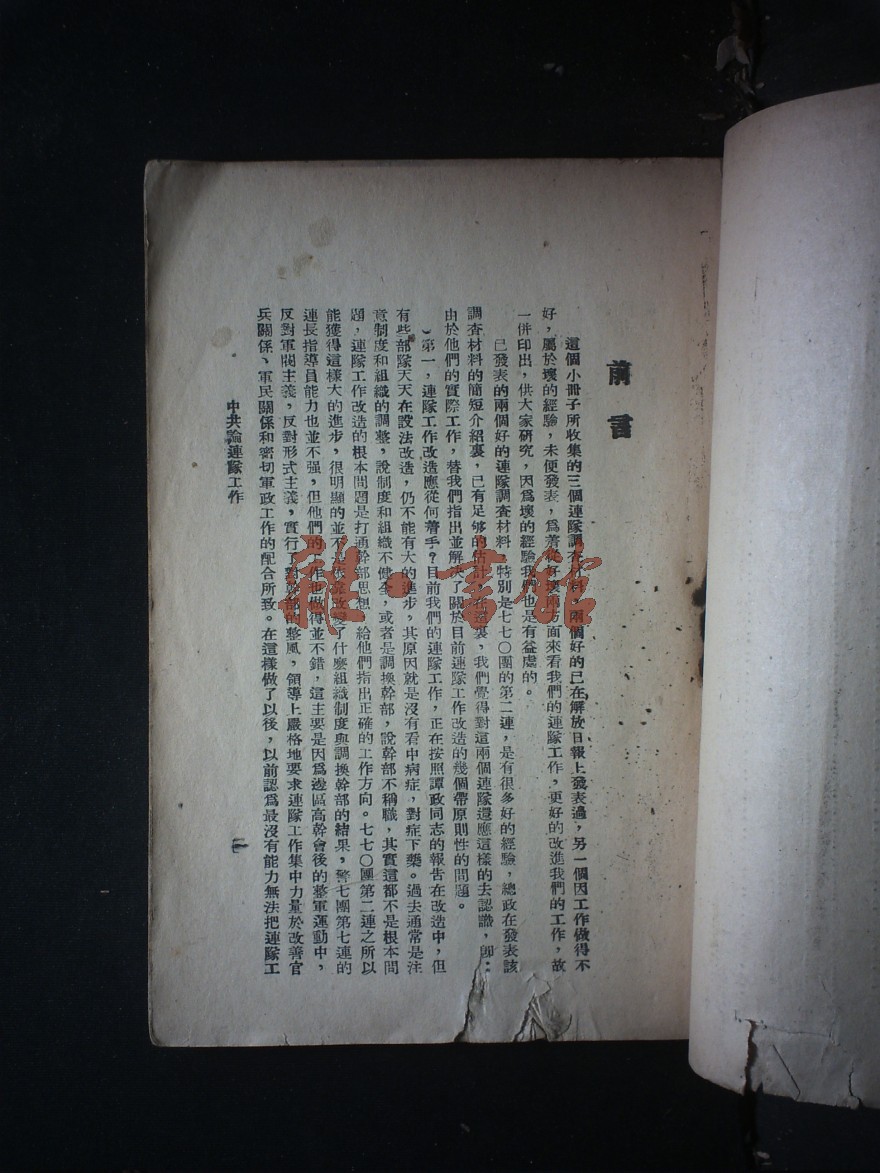 前言
這個小冊子所收集的三個連隊調查材料，兩個好的已在解放日報上發表過，另一個因工作做得不
好，屬於壞的經驗，未便發表，爲着從好壞兩方面來看我們的連隊工作，更好的改進我們的工作，故
一併印出，供大家研究，因爲壞的經驗我們也是有益處的。
已發表的兩個好的連隊調查材料，特別是七七〇團的第二連，是有很多好的經驗，總政在發表該
調查材料的簡短介紹裏，已有足够的估計，在這裏，我們覺得對這兩個連隊還應這樣的去認識，卽：
由於他們的實際工作，替我們指出並解决了關於目前連隊工作改造的幾個帶原則性的問題。
第一，連隊工作改造應從何着手？目前我們的連隊工作，正在按照譚政同志的報告在改造中，但
有些部隊天天在設法改造，仍不能有大的進步，其原因就是沒有看中病症，對症下藥。過去通常是注
意制度和組織的調整，說制度和組織不健全，或者是調換幹部，說幹部不稱職，其實這都不是根本問
題，連隊工作改造的根本問題是打通幹部思想，給他們指出正確的工作方向。七七〇團第二連之所以
能獲得這樣大的進步，很明顯的並不是依靠改變了什麼組織制度與調換幹部的結果，警七團第七連的
連長指導員能力也並不强，但他們的工作也做得並不錯，這主要是因爲邊區高幹會後的整軍運動中，
反對軍閥主義，反對形式主義，實行了對幹部的整風，領導上嚴格地要求連隊工作集中力量於改善官
兵關係、軍民關係和密切軍政工作的配合所致。在這樣做了以後，以前認爲最沒有能力無法把連隊工
中共論連隊工作
一
龍 書館